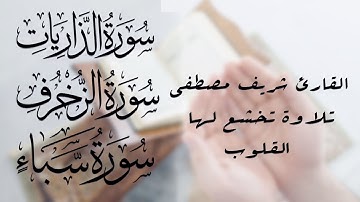 سُورَةُ الذَّارِيَات
سُورَةُ الزُّخْرُف
سُورَةُ سَبَإٍ
القارئ شريف مصطفى
تلاوة تخشع لها
القلوب